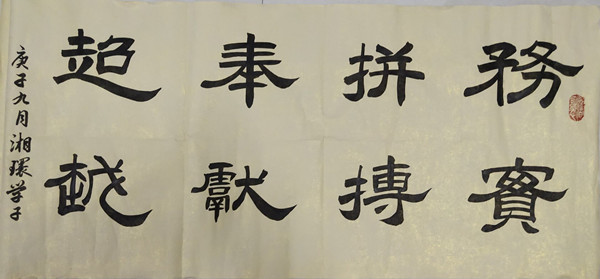 務實
拼搏
奉獻
超越
庚子九月湘環学子